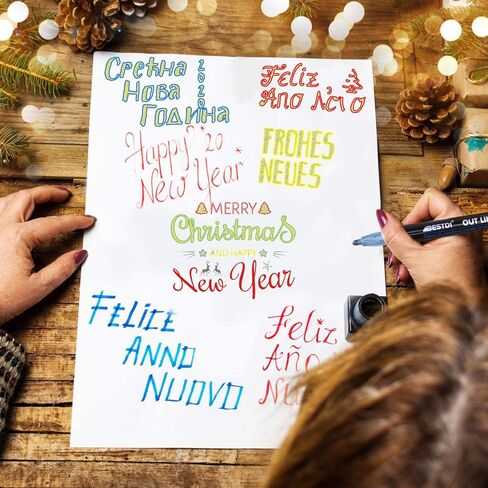 Среќна
Нова
Година
2020
Feliz
Año Nuevo
Happy '20
New Year
FROHES
NEUES
MERRY
Christmas
AND HAPPY
New Year
FELICE
ANNO
NUOVO
Feliz
Año
BESTDI OUT LI